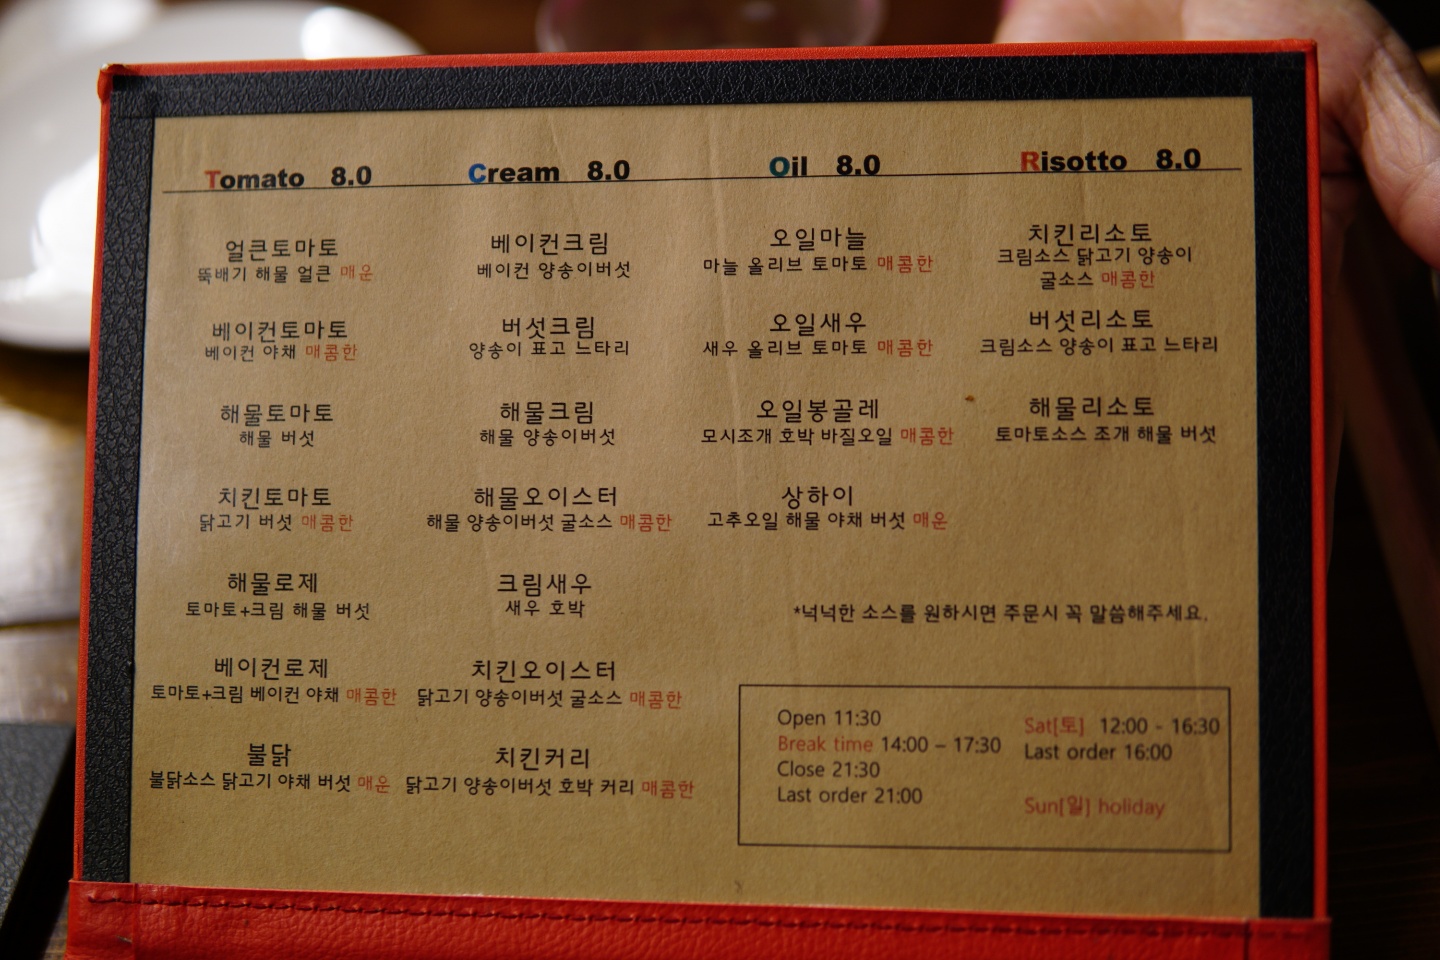 Tomato 8.0
얼큰토마토
뚝배기 해물 얼큰 매운
베이컨토마토
베이컨 야채 매콤한
해물토마토
해물 버섯
치킨토마토
닭고기 버섯 매콤한
해물로제
토마토+크림 해물 버섯
베이컨로제
토마토+크림 베이컨 야채 매콤한
불닭
불닭소스 닭고기 야채 버섯 매운
Cream 8.0
베이컨크림
베이컨 양송이버섯
버섯크림
양송이 표고 느타리
해물크림
해물 양송이버섯
해물오이스터
해물 양송이버섯 굴소스 매콤한
크림새우
새우 호박
치킨오이스터
닭고기 양송이버섯 굴소스 매콤한
치킨커리
닭고기 양송이버섯 호박 커리 매콤한
Oil 8.0
오일마늘
마늘 올리브 토마토 매콤한
오일새우
새우 올리브 토마토 매콤한
오일봉골레
모시조개 호박 바질오일 매콤한
상하이
고추오일 해물 야채 버섯 매운
Risotto 8.0
치킨리소토
크림소스 닭고기 양송이
굴소스 매콤한
버섯리소토
크림소스 양송이 표고 느타리
해물리소토
토마토소스 조개 해물 버섯
*넉넉한 소스를 원하시면 주문시 꼭 말씀해주세요.
Open 11:30
Break time 14:00 – 17:30
Close 21:30
Last order 21:00
Sat[토] 12:00 - 16:30
Last order 16:00
Sun[일] holiday